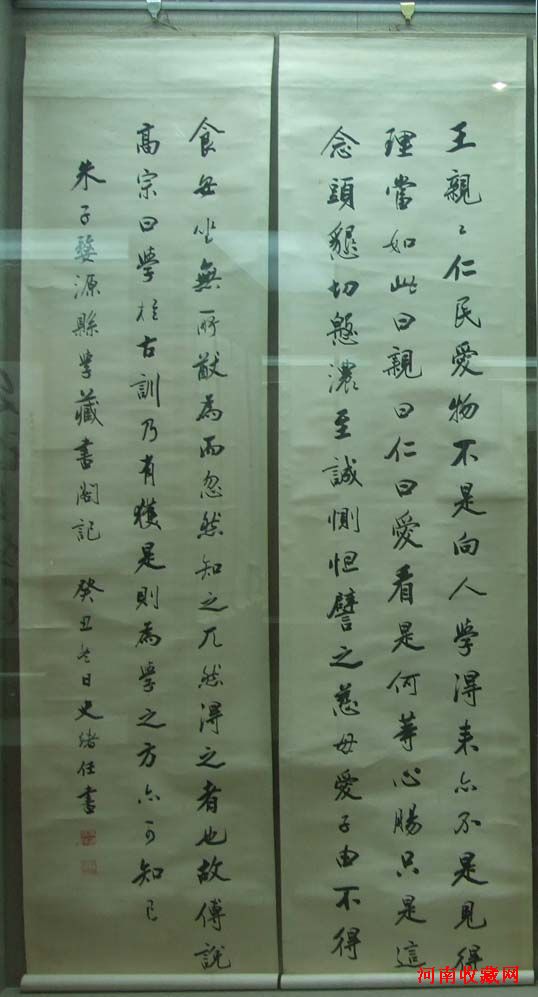 王親〻仁民愛物不是向人學得来亦不是見得
理當如此曰親曰仁曰愛看是何等心腸只是這
念頭懇切慇濃至誠惻怛譬之慈母愛子由不得
食安坐無所猷為而忽然知之兀然得之者也故傅說
高宗曰學於古訓乃有獲是則為學之方亦可知已
朱子婺源縣學藏書閣記 癸丑冬日史緒任書
河南收藏网